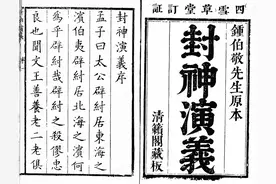 四雪草堂訂証
鍾伯敬先生原本
封神演義
清籟閣藏板
封神演義序
孟子曰太公辟紂居東海之
濱伯夷辟紂居北海之濱何
為乎辟紂哉辟紂之殺僇忠
良也聞文王善養老二老俱